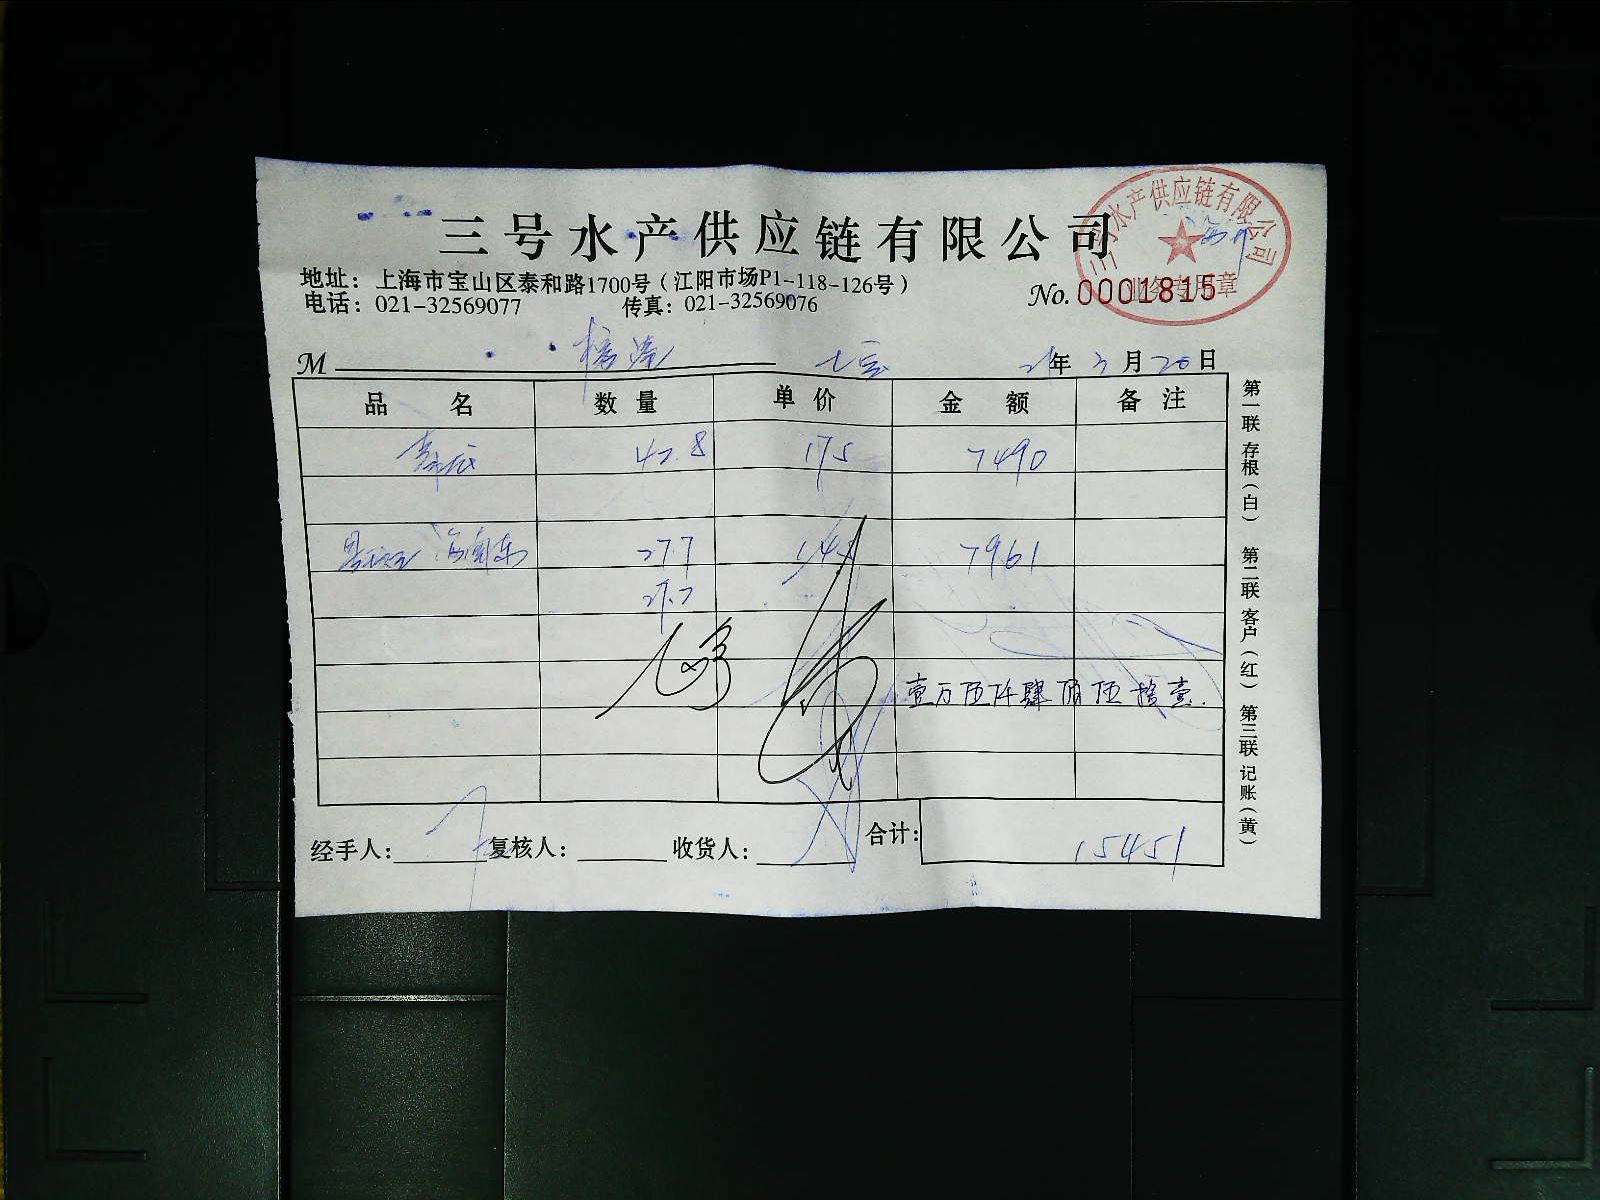 三号水产供应链有限公司
三号水产供应链有限公司
业务专用章
地址：上海市宝山区泰和路1700号（江阳市场P1-118-126号）
电话：021-32569077 传真：021-32569076
No. 0001815
M 七宝 21年3月20日
品名 数量 单价 金额 备注
42.8 175 7490
27.7 145 7961
27.2
壹万伍仟肆佰伍拾壹.
经手人： 复核人： 收货人： 合计： 15451
第一联 存根（白） 第二联 客户（红） 第三联 记账（黄）